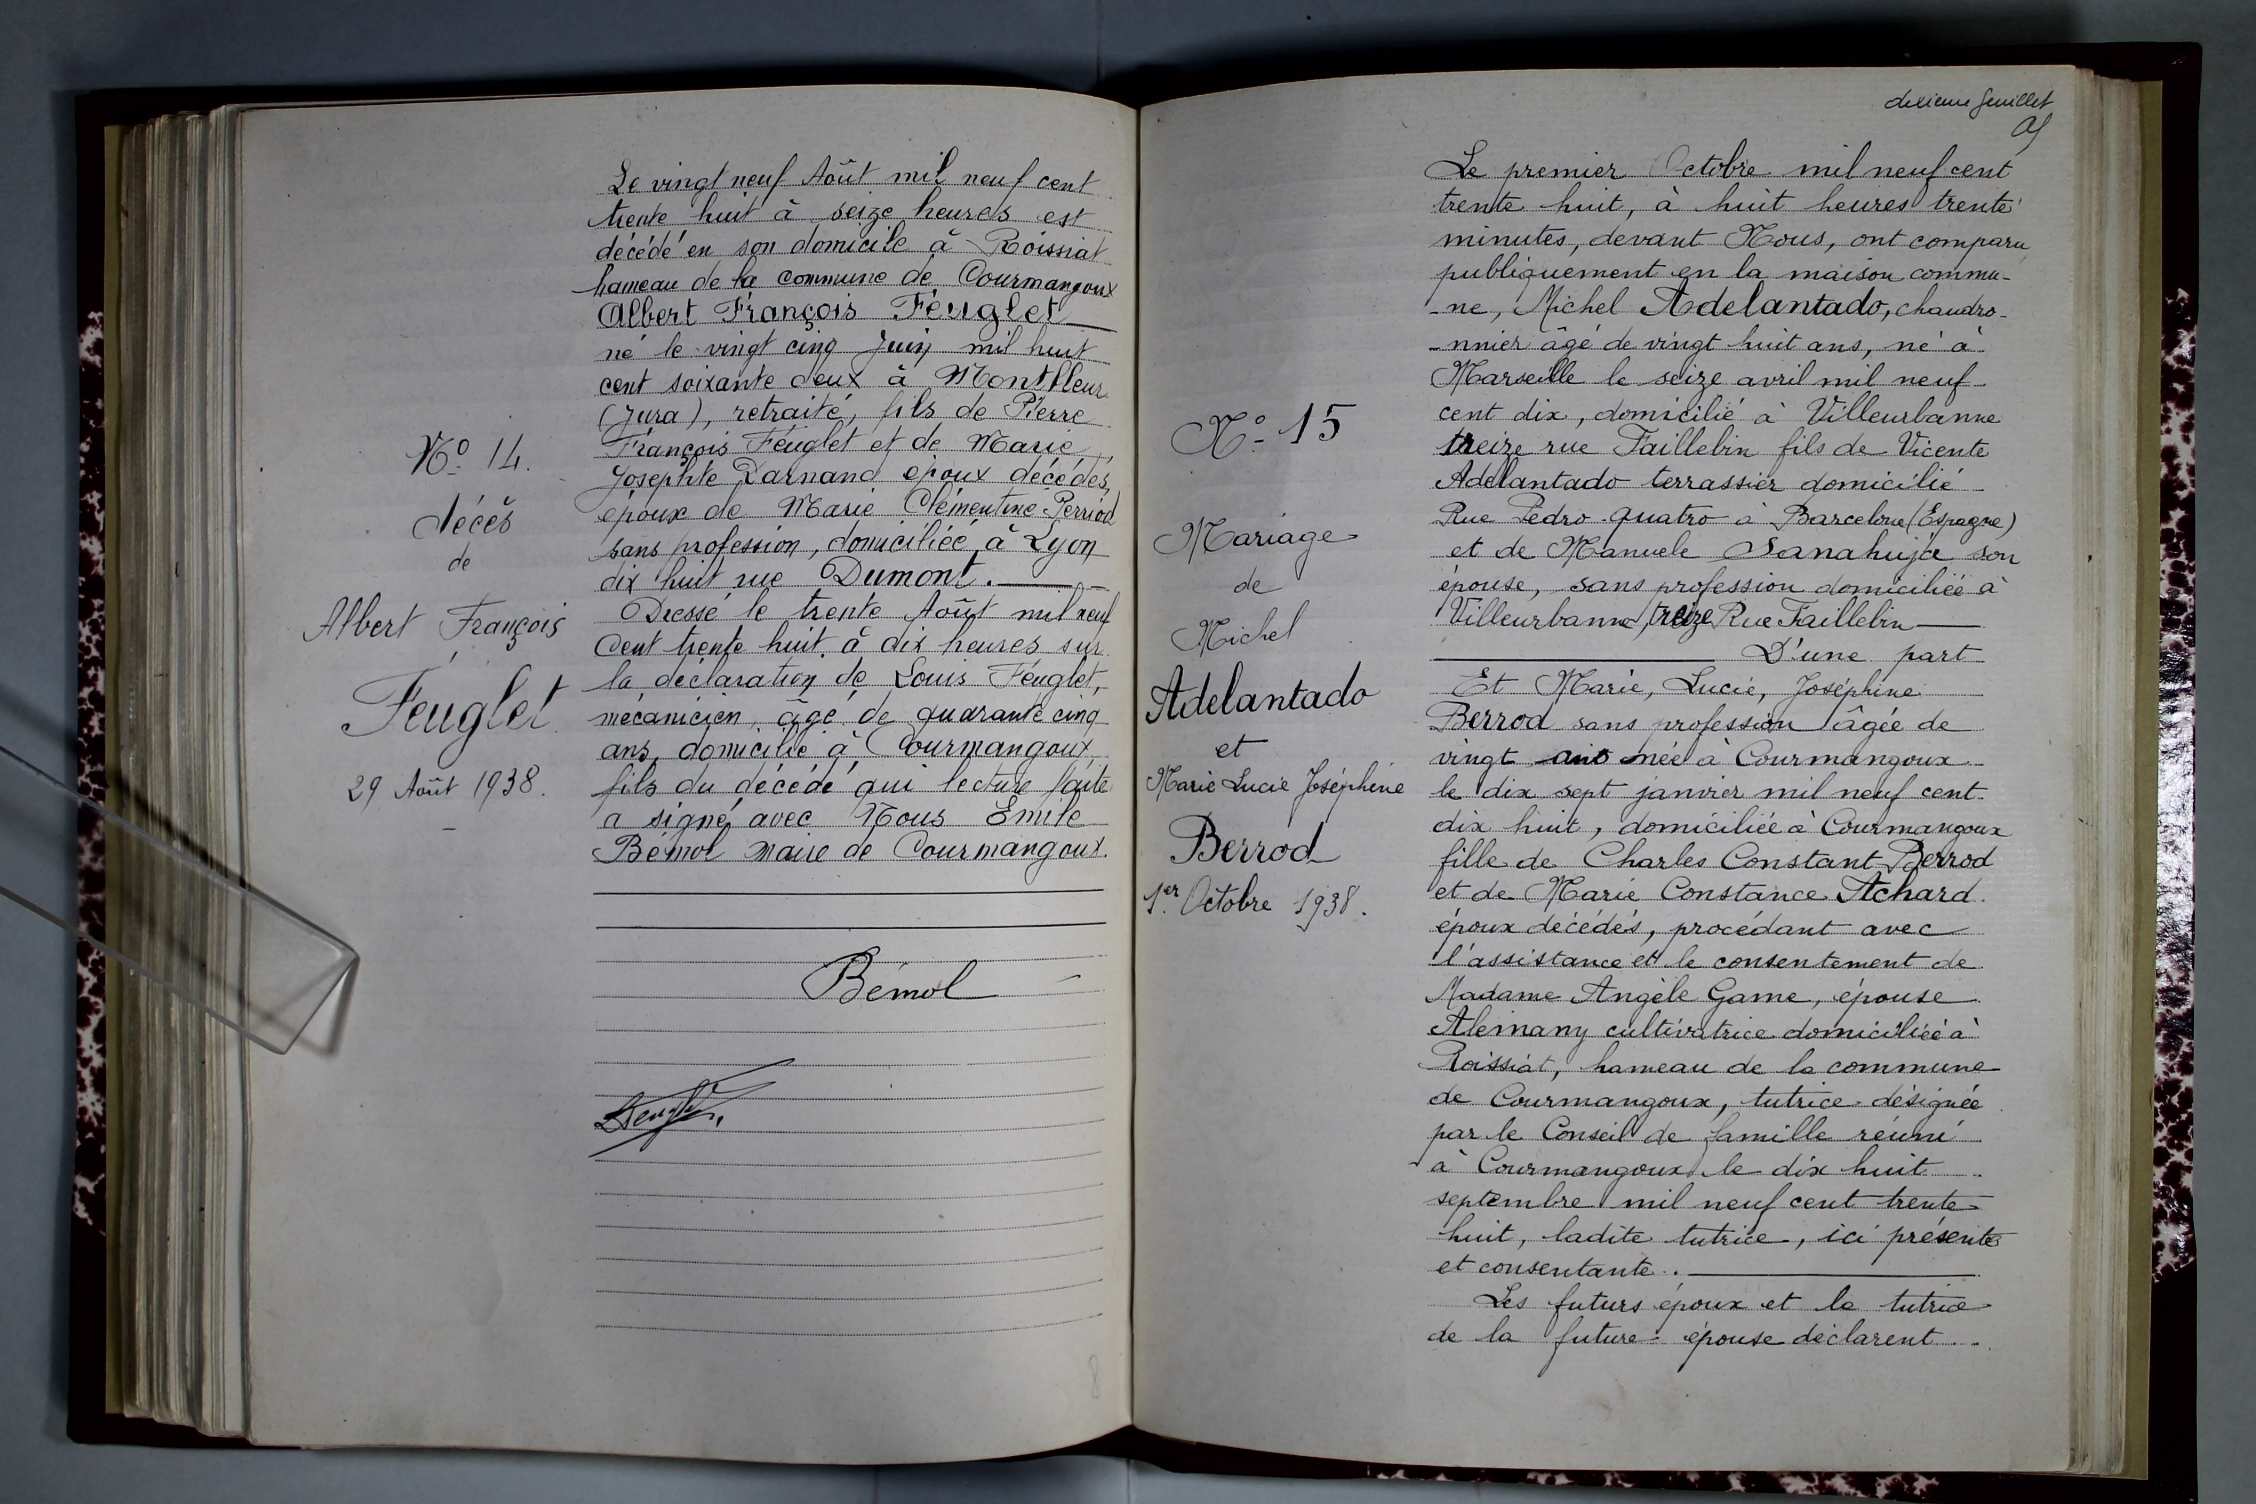 N° 14.
décès
de
Albert François
Feuglet
29 Août 1938.
Le vingt neuf Août mil neuf cent
trente huit à seize heures est
décédé en son domicile à Roissiat
hameau de la commune de Courmangoux
Albert François Féuglet
né le vingt cinq Juin mil huit
cent soixante deux à Montfleur
(Jura), retraité, fils de Pierre
François Féuglet et de Marie
Josephte Darnand époux décédés,
époux de Marie Clémentine Perriod
sans profession, domiciliée à Lyon
dix huit rue Dumont.
Dressé le trente Août mil neuf
Cent trente huit à dix heures sur
la déclaration de Louis Féuglet,
mécanicien, âgé de quarante cinq
ans, domicilié à Courmangoux
fils du décédé qui lecture faite
a signé avec Nous Emile
Bémol maire de Courmangoux.
Bémol
8
dixieme feuillet
N° 15
Mariage
de
Michel
Adelantado
et
Marie Lucie Joséphine
Berrod
1er Octobre 1938.
Le premier Octobre mil neuf cent
trente huit, à huit heures trente
minutes, devant Nous, ont comparu
publiquement en la maison commu-
-ne, Michel Adelantado, chaudro-
-nnier âgé de vingt huit ans, né à
Marseille le seize avril mil neuf
cent dix, domicilié à Villeurbanne
treize rue Faillebin fils de Vicente
Adelantado terrassier domicilié
Rue Pedro quatro à Barcelone (Espagne)
et de Manuele Sanahuja son
épouse, sans profession domiciliée à
Villeurbanne, treize Rue Faillebin
D'une part
Et Marie, Lucie, Joséphine
Berrod sans profession âgée de
vingt ans née à Courmangoux
le dix sept janvier mil neuf cent
dix huit, domiciliée à Courmangoux
fille de Charles Constant Berrod
et de Marie Constance Achard
époux décédés, procédant avec
l'assistance et le consentement de
Madame Angèle Game, épouse
Alemany cultivatrice domiciliée à
Roissiat, hameau de la commune
de Courmangoux, tutrice désignée
par le Conseil de famille réuni
à Courmangoux le dix huit
septembre mil neuf cent trente
huit, ladite tutrice, ici présente
et consentante.
Les futurs époux et la tutrice
de la future épouse déclarent